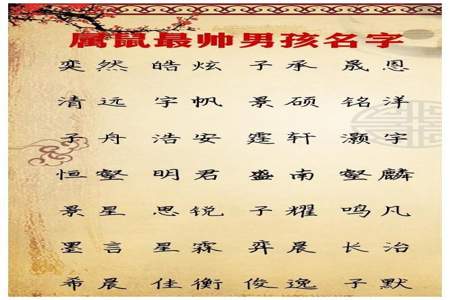 属鼠最帅男孩名字
奕然 皓炫 子承 晟恩
清远 宇帆 景硕 铭洋
子舟 浩安 霆轩 灏宇
恒壑 明君 盛南 壑麟
景星 思锐 子耀 鸣凡
墨言 星霖 弈晨 长治
希晨 佳衡 俊逸 子默